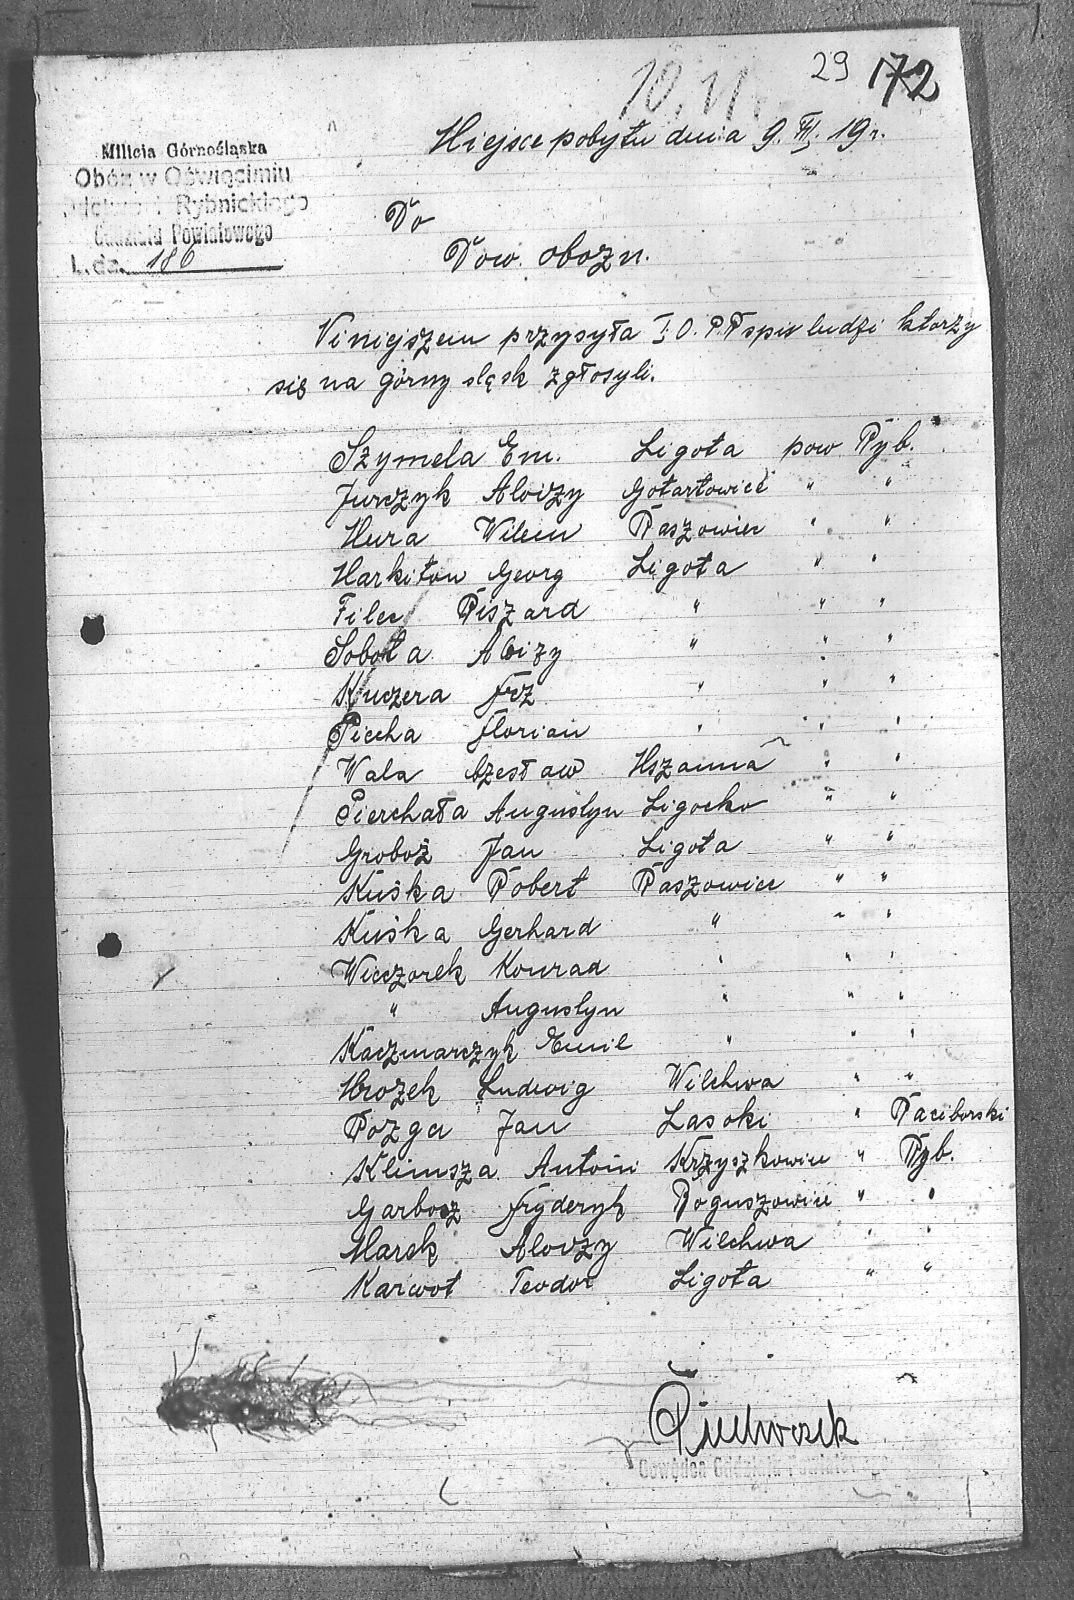 29 172
10. VI
Miejsce pobytu dnia 9. VI. 19 r.
Milicia Górnośląska
Obóz w Oświęcimiu
Rybnickiego
Oddziału Powiatowego
L. dz. 186
Do
Dow. obozu.
Niniejszem przysyła I. O. P. R spis ludzi ktorzy
się na górny sląsk zgłosyli.
Szymela Em. Ligota pow Ryb.
Jurczyk Aloizy Gotartowice " "
Mura Wilem Raszowiec " "
Markiton Georg Ligota " "
Filec Riszard " " "
Sobota Aloizy " " "
Kuczera Frz " " "
Piecha Florian " " "
Wala Czesław Mszanna " "
Pierchała Augustyn Ligocko " "
Groboż Jan Ligota " "
Kuśka Robert Raszowice " "
Kuśka Gerhard " " "
Wieczorek Konrad " " "
" Augustyn " " "
Kaczmarczyk Emil " " "
Mrozek Ludwig Wilchwa " "
Rozga Jan Lasoki " Raciborski
Klimsza Antoni Krzyszkowice " Ryb.
Garbocz Fryderyk Roguszowice " "
Marek Aloizy Wilchwa " "
Karwot Teodor Ligota " "
Dowódca Oddziału Powiatowego